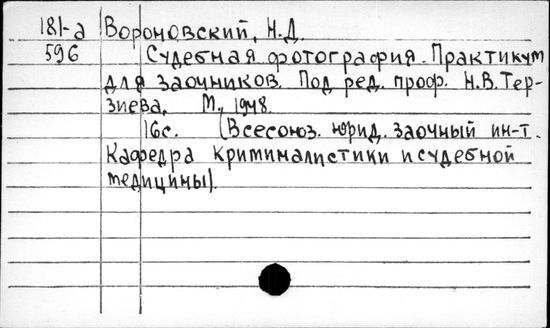 181-а Вороновский, Н.Д.
596 Судебная фотография. Практикум
для заочников. Под ред. проф. Н.В. Тер-
зиева. М., 1948.
16с. (Всесоюз. юрид. заочный ин-т.
Кафедра криминалистики и судебной
медицины).